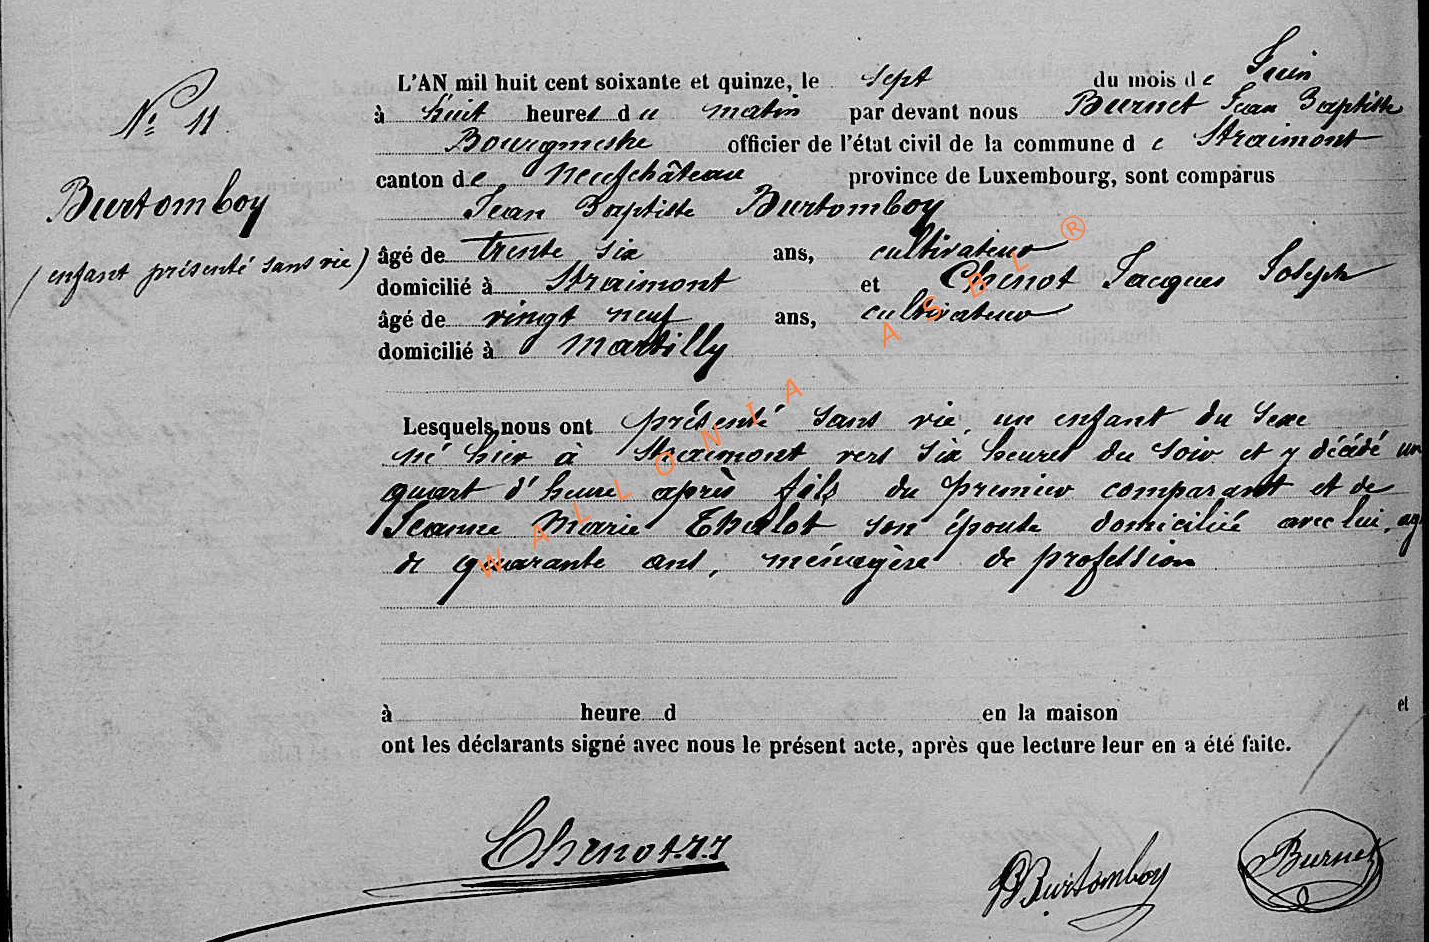 Nº 11.
Burtomboy
(enfant présenté sans vie)
L'AN mil huit cent soixante et quinze, le sept du mois de Juin
à huit heures du matin par devant nous Burnet Jean Baptiste
Bourgmestre officier de l'état civil de la commune de Straimont
canton de Neufchâteau province de Luxembourg, sont comparus
Jean Baptiste Burtomboy
âgé de trente six ans, cultivateur
domicilié à Straimont et Chenot Jacques Joseph
âgé de vingt neuf ans, cultivateur
domicilié à Martilly
Lesquels nous ont présenté sans vie, un enfant du sexe
né hier à Straimont vers six heures du soir et y décédé un
quart d'heure après fils du premier comparant et de
Jeanne Marie son épouse domiciliée avec lui, ag
de quarante ans, ménagère de profession
à heure d en la maison et
ont les déclarants signé avec nous le présent acte, après que lecture leur en a été faite.
Chenot J.J
JBBurtomboy
Burnet
WALLONIA ASBL ®